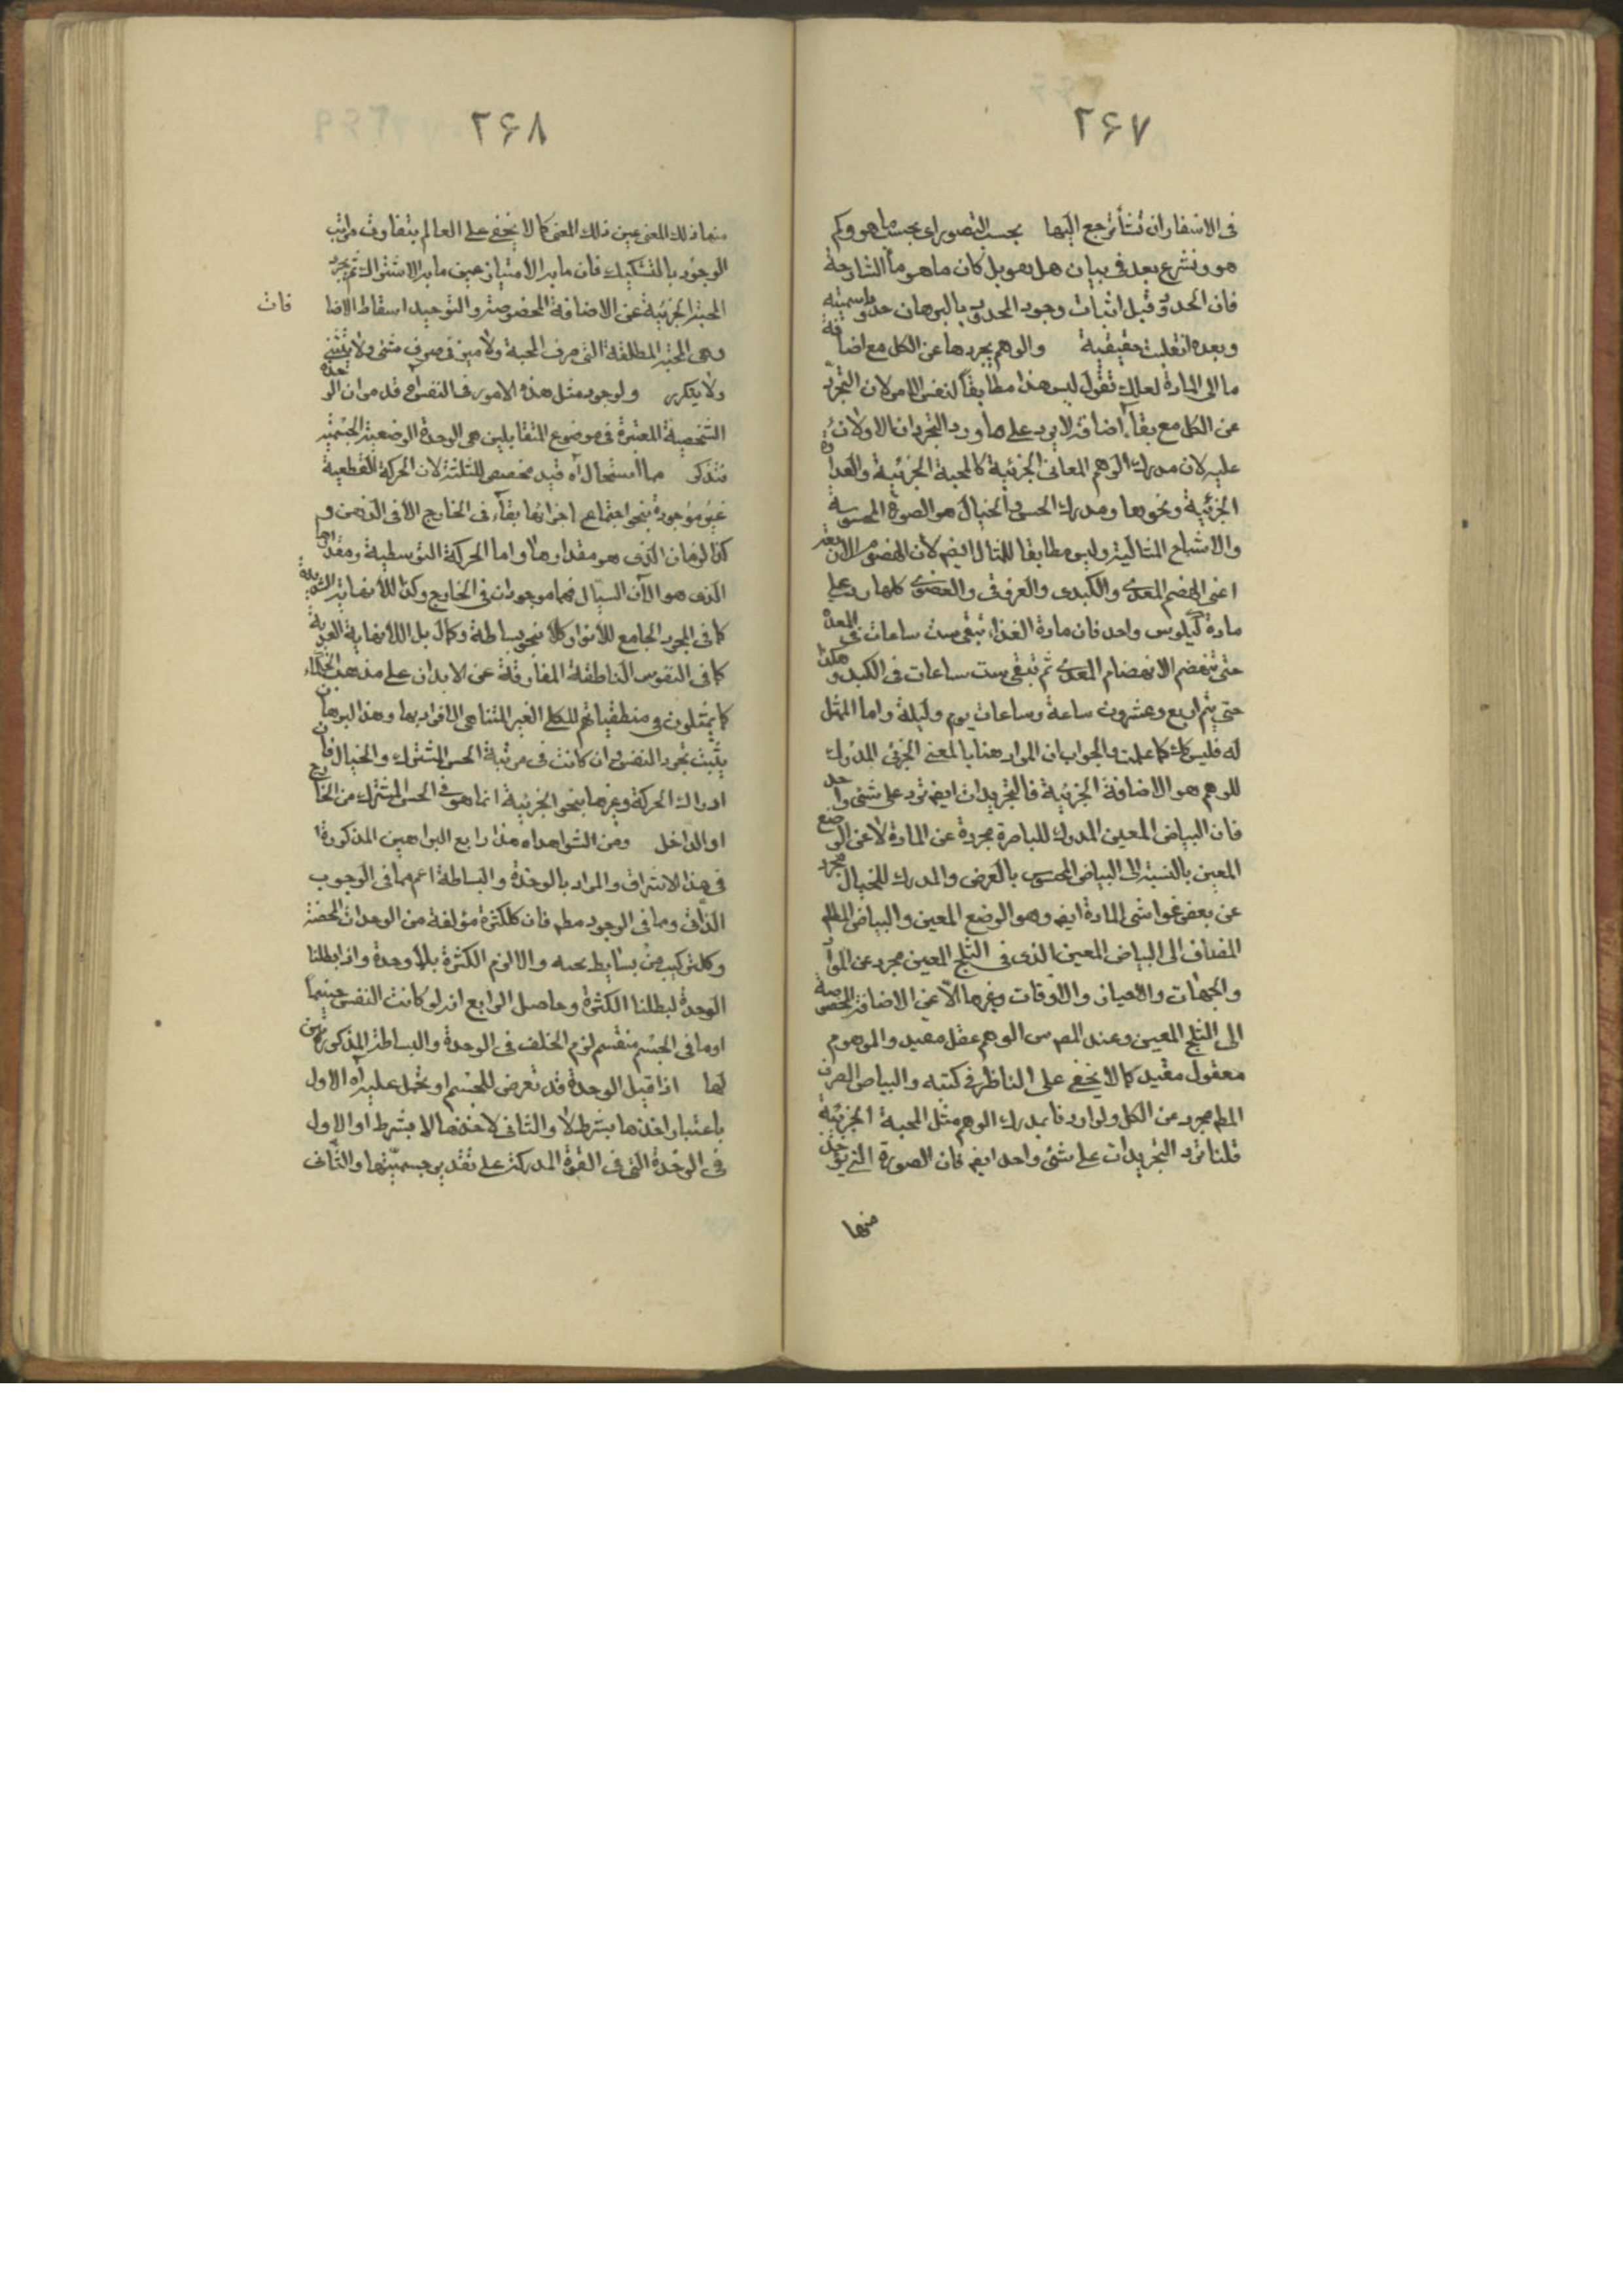 ۲۶۷
فی الاسفار ان شئت أن ترجع الیها بحسب التصور ای بحسب ما هو وکم
هو ونشرع بعد فی بیان هل هو بل کان ما هو ما الشارحة
فان الحدود قبل اثبات وجود المحدود بالبرهان حدود اسمیته
وبعده انقلبت حقیقیة والوهم یجردها عن الکل مع اضافة
ما الی المادة لعلک تقول لیس هذا مطابقاً لنفس الامر لان التجرد
عن الکل مع بقاء اضافة لا یرد علی ما ورد التجریدان الاولان
علیه لان مدرک الوهم المعانی الجزئیة کالمحبة الجزئیة والعداوة
الجزئیة ونحوها ومدرک الحس والخیال هو الصورة المحسوسة
والاشباح المثالیة ولیس مطابقا للمثال ایضم لان الهضوم الاربعة
اعنی الهضم المعدی والکبدی والعروقی والعضوی کلها یرد علی
مادة کیلوس واحد فان مادة الغذاء تبقی ست ساعات فی المعدة
حتی تنهضم الانهضام المعدی ثم تبقی ست ساعات فی الکبد وهکذا
حتی یتم اربع وعشرون ساعة وساعات یوم ولیلة واما الممثل
له فلیس کک کما علمت والجواب ان المراد هنا بالمعنی الجزئی المدرک
للوهم هو الاضافة الجزئیة فالتجریدات ایضم ترد علی شئی واحد
فان البیاض المعین المدرک للباصرة مجردة عن المادة لا عن الوضع
المعین بالنسبة الی البیاض المحسوس بالعرض والمدرک للخیال مجرد
عن بعض غواشی المادة ایضم وهو الوضع المعین والبیاض المطلم
المضاف الی البیاض المعین الذی فی الثلج المعین مجرد عن المواد
والجهات والاحیاز والاوقات وغیرها الّا عن الاضافة المخصوصة
الی الثلج المعین وعند المصم الوهم عقل مقید والموهوم
معقول مقید کما لا یخفی علی الناظر فی کتبه والبیاض الصرف
المطم مجرد عن الکل ولو اردنا بمدرک الوهم مثل المحبة الجزئیة
قلنا ترد التجریدات علی شئی واحد ایضم فان الصورة التی تؤخذ
منها
۲۶۸
منها ذلک المعنی عین ذلک المعنی کما لا یخفی علی العالم بتفاوت مراتب
الوجود بالتشکیک فان ما به الامتیاز عین ما به الاشتراک ثم یجرد
المحبة الجزئیة عن الاضافة المخصوصة والتوحید اسقاط الاضا فات
وهی المحبة المطلقة التی صرف المحبة ولا میز فی صرف شئی ولا یتثنی
ولا یتکرر ولوجود مثل هذه الامور فی النفس آه قد مر ان الوحدة
الشخصیة المعتبرة فی موضوع المتقابلین هی الوحدة الوضعیة الجسمیة
فتذکر مما استحال آه قید مخصص للثلثة لان الحرکة القطعیة
غیر موجودة بنحو اجتماع اجزائها بقاء فی الخارج الا فی الذهن و
کذا الزمان الذی هو مقدارها واما الحرکة التوسطیة ومقدارها
الذی هو الآن السیال فهما موجودان فی الخارج وکذا اللانهایة الشدیة
کما فی المجرد الجامع للانوار کلا بنحو بساطة وکمال بل اللانهایة العدیة
کما فی النفوس الناطقة المفارقة عن الابدان علی مذهب الحکماء
کما یمثلون فی منطقیاتهم للکلی الغیر المتناهی الافراد بها وهذا البرهان
یثبت تجرد النفس وان کانت فی مرتبة الحس المشترک والخیال فان
ادراک الحرکة وغیرها بنحو الجزئیة انما هو فی الحس المشترک من الخارج
او الداخل ومن الشواهد آه هذا رابع البراهین المذکورة
فی هذا الاشراق والمراد بالوحدة والبساطة اعم مما فی الوجوب
الذاتی ومما فی الوجود مطم فان کل کثرة مؤلفة من الوحدات المحضة
وکل ترکیب من بسایط بحته والا لزم الکثرة بلا وحدة واذا بطلنا
الوحدة لبطلنا الکثرة وحاصل الرابع انه لو کانت النفس جسما
او ما فی الجسم منقسم لزم الخلف فی الوحدة والبساطة المذکورتین
لها اذا قیل الوحدة قد تعرض للجسم او تحمل علیه آه الاول
باعتبار اخذها بشرط لا والثانی لاخذها لا بشرط او الاول
فی الوحدة التی فی القوة المدرکة علی تقدیر جسمیّتها والثانی